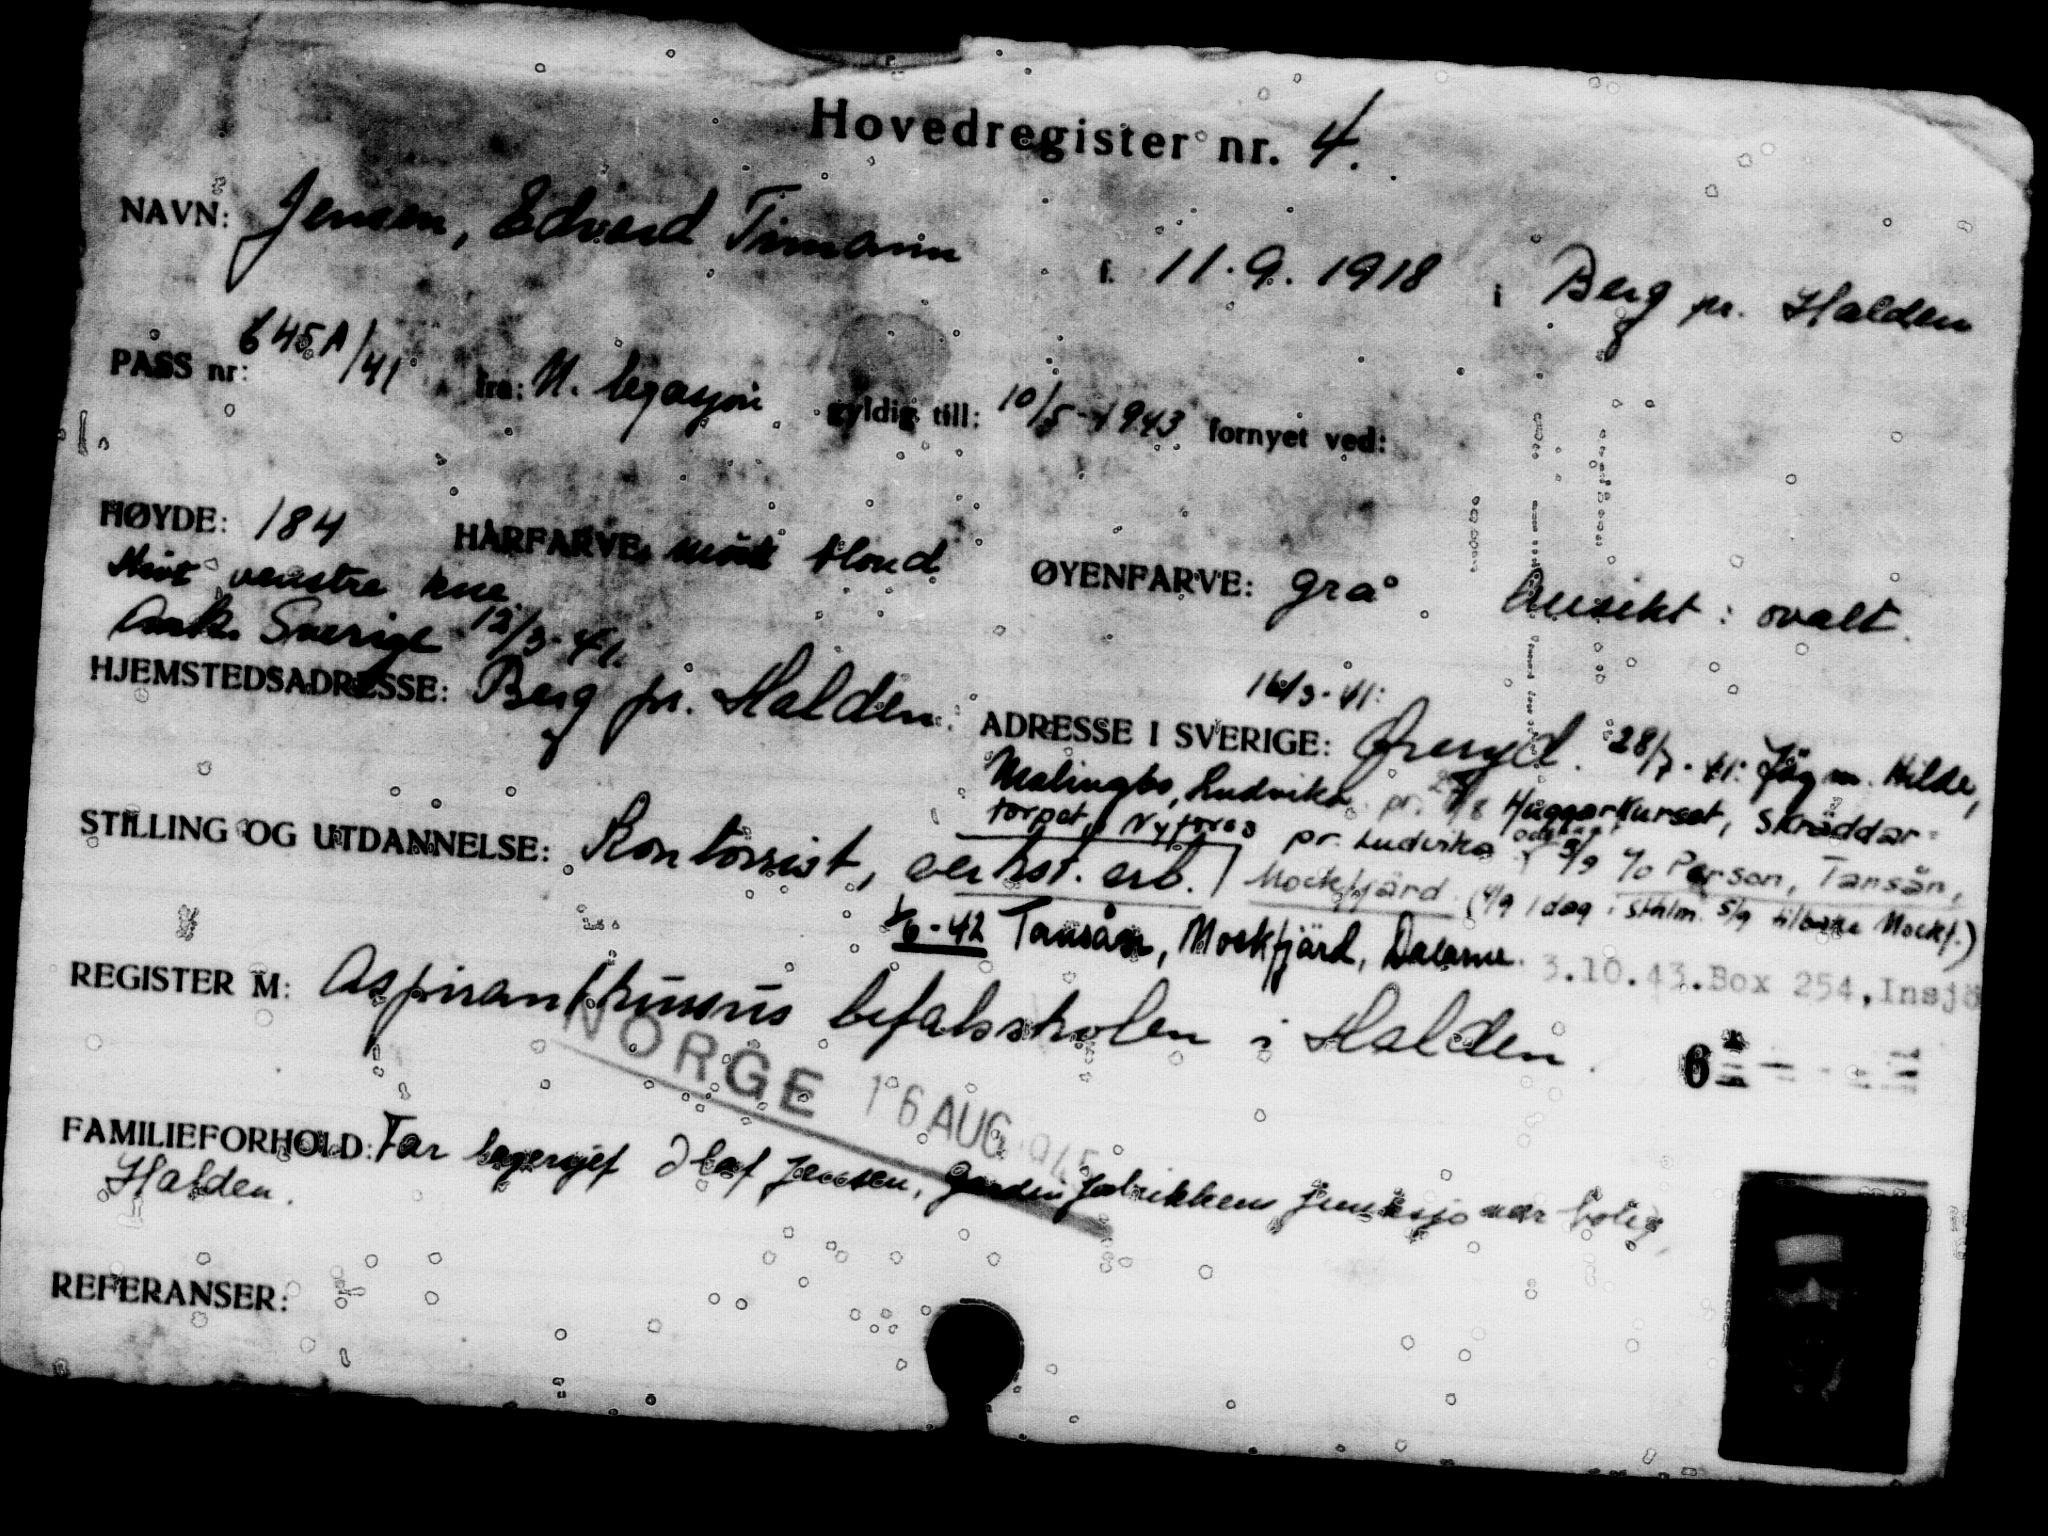 Hovedregister nr. 4.
NAVN: Jensen, Edvard Timann f. 11.9.1918 i Berg pr. Halden
PASS nr: 645A/41 fra: N. legasjon gyldig till: 10/5-1943 fornyet ved:
HØYDE: 184 HÅRFARVE: mörk blond ØYENFARVE: grå Ansikt: ovalt.
venstre kne.
Ank. Sverige 12/3-41.
HJEMSTEDSADRESSE: Berg pr. Halden.
16/3-41:
ADRESSE I SVERIGE: Øreryd. 28/7-41: Jäg m. Hilde,
Malingsbo, Ludvika. pr. Huggarkurset, Skräddar-
torpet, Nyfors pr. Ludvika 5/9 c/o Person, Tansån,
Mockfjärd. (4/9 i dag i Sthlm. 5/9 tilbake Mockf.)
STILLING OG UTDANNELSE: Kontorist, verkst. arb.
1/6-42 Tansån, Mockfjärd, Dalarne. 3.10.43.Box 254,Insjö
REGISTER M: Aspirantkursus befalsskolen i Halden.
NORGE 16 AUG 1945
6
FAMILIEFORHOLD: Far lagersjef Olaf Jensen, fabrikken bolig,
Halden.
REFERANSER: